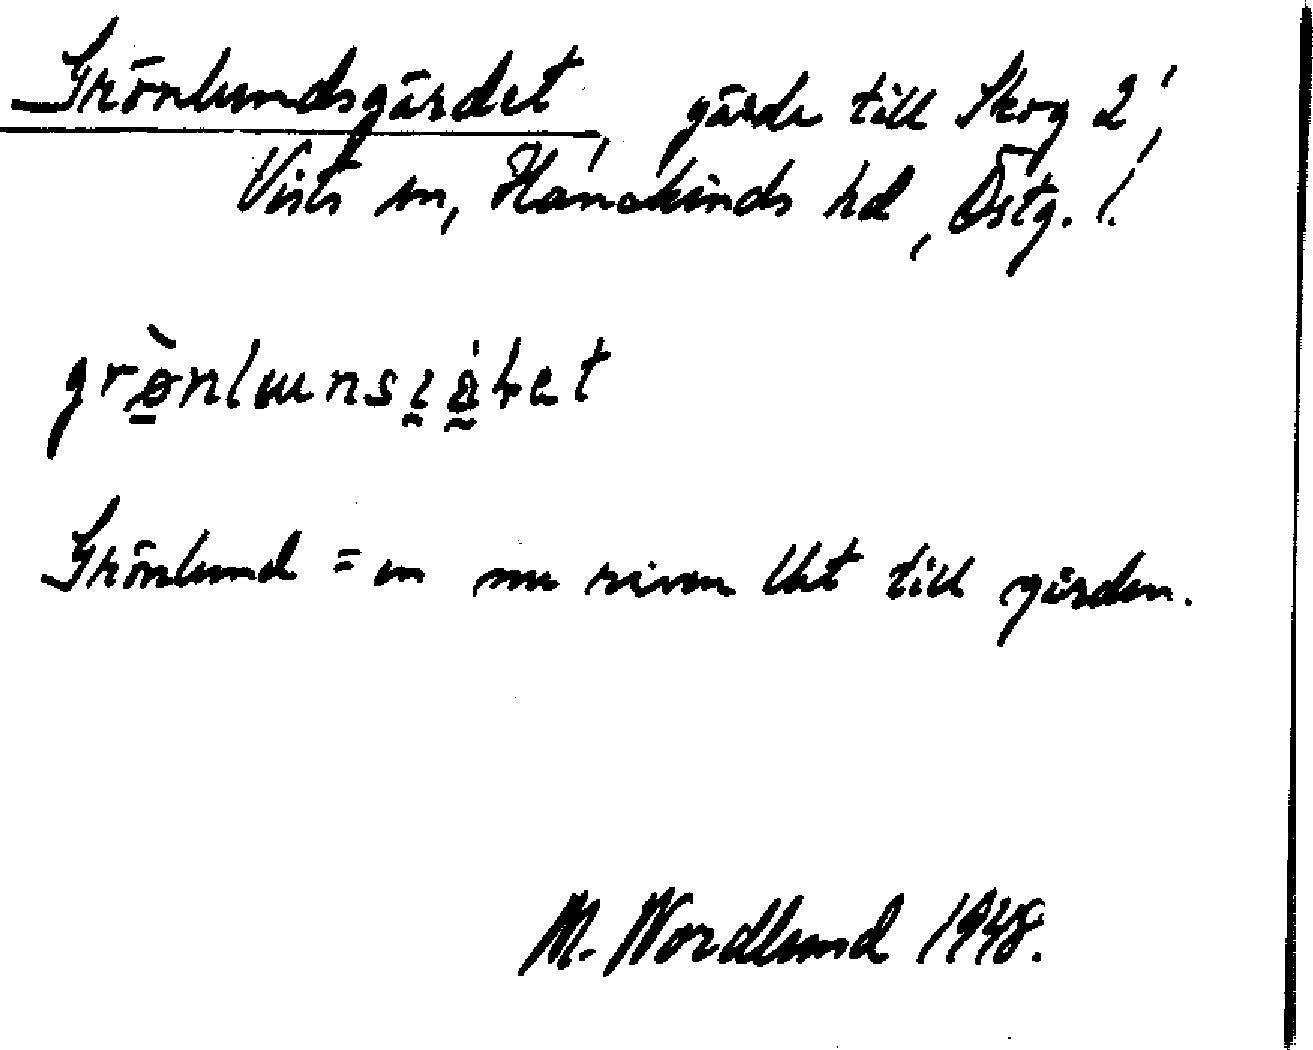 Grönlundsgärdet, gärde till Skog 2¹,
Vists sn, Hanekinds hd, Östg. l.
Grönlund = en nu riven lht till gården.
M. Nordlund 1948.